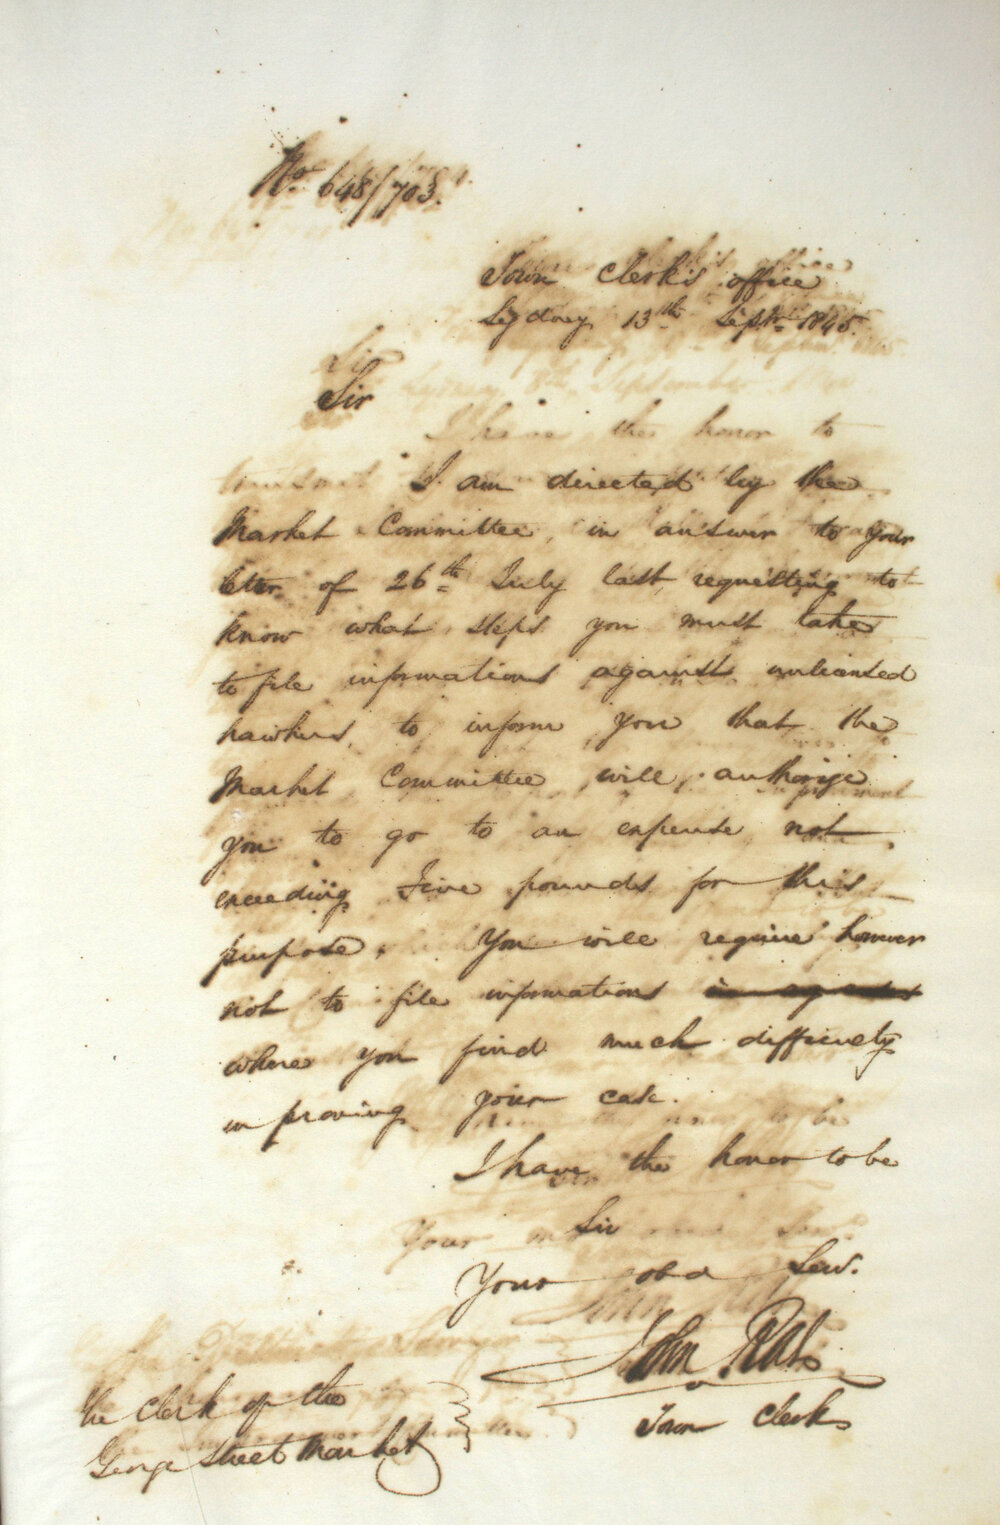 No. 648/703.
Town Clerk's office
Sydney 13th Septr. 1845.
Sir
I am directed by the
Market Committee, in answer to your
letter of 26th July last, requesting to
know what steps you must take
to file informations against unlicensed
hawkers, to inform you that the
Market Committee will authorize
you to go to an expense not
exceeding Five pounds for this
purpose. You will require however
not to file informations
where you find much difficulty
in proving your case.
I have the honor to be
Sir
Your obd Serv.
John Rae
Town Clerk
The Clerk of the
George Street Market